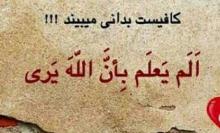 کافیست بدانی میبیند !!!
اَلَم یَعلَم بِأنَّ اللَّهَ یَری